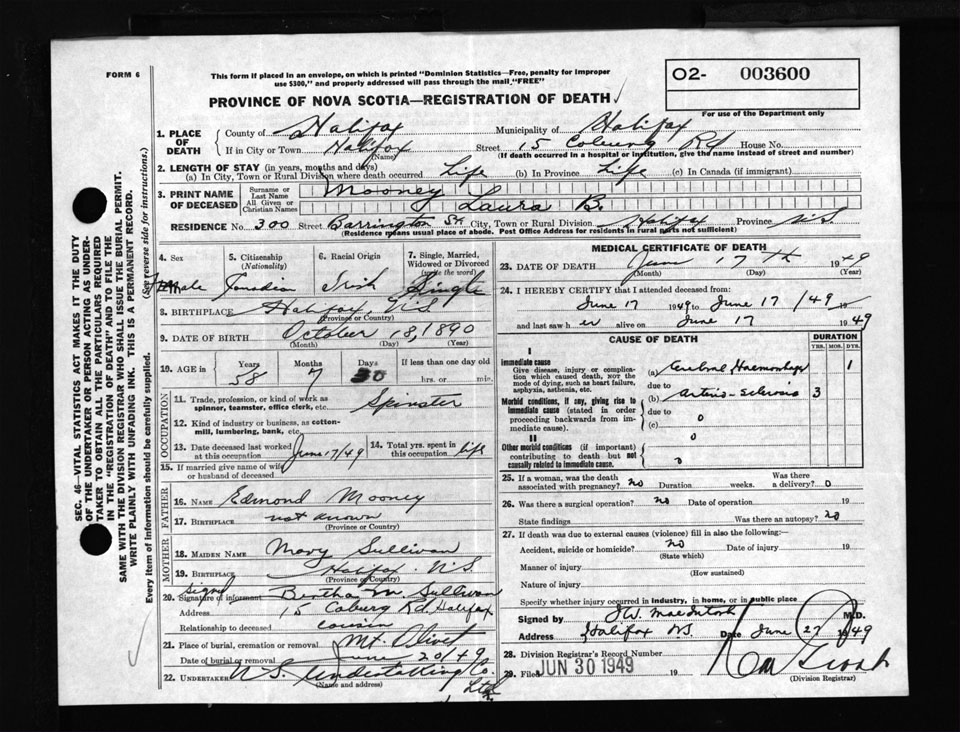 FORM 6
This form if placed in an envelope, on which is printed "Dominion Statistics—Free, penalty for improper
use $300," and properly addressed will pass through the mail "FREE"
PROVINCE OF NOVA SCOTIA—REGISTRATION OF DEATH
O2- 003600
For use of the Department only
1. PLACE OF DEATH { County of Halifax Municipality of Halifax
If in City or Town Halifax (Name) Street 15 Coburg Rd House No.
(If death occurred in a hospital or institution, give the name instead of street and number)
2. LENGTH OF STAY (in years, months and days)
(a) In City, Town or Rural Division where death occurred Life (b) In Province Life (c) In Canada (if immigrant)
3. PRINT NAME OF DECEASED { Surname or Last Name Mooney
All Given or Christian Names Laura B.
RESIDENCE No. 300 Street Barrington St City, Town or Rural Division Halifax Province N.S.
(Residence means usual place of abode. Post Office Address for residents in rural parts not sufficient)
4. Sex 5. Citizenship (Nationality) 6. Racial Origin 7. Single, Married, Widowed or Divorced (write the word)
Female Canadian Irish Single
8. BIRTHPLACE Halifax, N.S.
(Province or Country)
9. DATE OF BIRTH October 18, 1890
(Month) (Day) (Year)
10. AGE in { Years Months Days If less than one day old
58 7 30 hrs. or min.
OCCUPATION
11. Trade, profession, or kind of work as spinner, teamster, office clerk, etc. Spinster
12. Kind of industry or business, as cotton-mill, lumbering, bank, etc.
13. Date deceased last worked at this occupation June 17/49 14. Total yrs. spent in this occupation life
15. If married give name of wife or husband of deceased
FATHER
16. NAME Edmond Mooney
17. BIRTHPLACE not known
(Province or Country)
MOTHER
18. MAIDEN NAME Mary Sullivan
19. BIRTHPLACE Halifax N.S.
(Province or Country)
signed
20. Signature of informant Bertha M. Sullivan
Address 15 Coburg Rd, Halifax
Relationship to deceased cousin
21. Place of burial, cremation or removal Mt. Olivet
Date of burial or removal June 20/49
22. UNDERTAKER N.S. Undertaking Co. Ltd
(Name and address)
MEDICAL CERTIFICATE OF DEATH
23. DATE OF DEATH June 17th 1949
(Month) (Day) (Year)
24. I HEREBY CERTIFY that I attended deceased from:
June 17 1949 to June 17 /49 19
and last saw h er alive on June 17 1949
CAUSE OF DEATH DURATION
YRS. MOS. DYS.
I
Immediate cause
Give disease, injury or complication which caused death, not the mode of dying, such as heart failure, asphyxia, asthenia, etc.
(a) Cerebral Haemorrhage 1
due to
Morbid conditions, if any, giving rise to immediate cause (stated in order proceeding backwards from immediate cause).
(b) arterio-sclerosis 3
due to 0
(c) 0
II
Other morbid conditions (if important) contributing to death but not causally related to immediate cause.
0
25. If a woman, was the death associated with pregnancy? no Duration weeks. Was there a delivery? 0
26. Was there a surgical operation? no Date of operation 19
State findings Was there an autopsy? no
27. If death was due to external causes (violence) fill in also the following:
Accident, suicide or homicide? no Date of injury 19
(State which)
Manner of injury
(How sustained)
Nature of injury
Specify whether injury occurred in industry, in home, or in public place
Signed by J.W. MacIntosh M.D.
Address Halifax N.S. Date June 27 1949
28. Division Registrar's Record Number
29. Filed JUN 30 1949 19
(Division Registrar)
SEC. 46—VITAL STATISTICS ACT MAKES IT THE DUTY
OF THE UNDERTAKER OR PERSON ACTING AS UNDER-
TAKER TO OBTAIN ALL THE PARTICULARS REQUIRED
IN THE "REGISTRATION OF DEATH" AND TO FILE THE
SAME WITH THE DIVISION REGISTRAR WHO SHALL ISSUE THE BURIAL PERMIT.
WRITE PLAINLY WITH UNFADING INK. THIS IS A PERMANENT RECORD.
Every item of information should be carefully supplied. (See reverse side for instructions.)